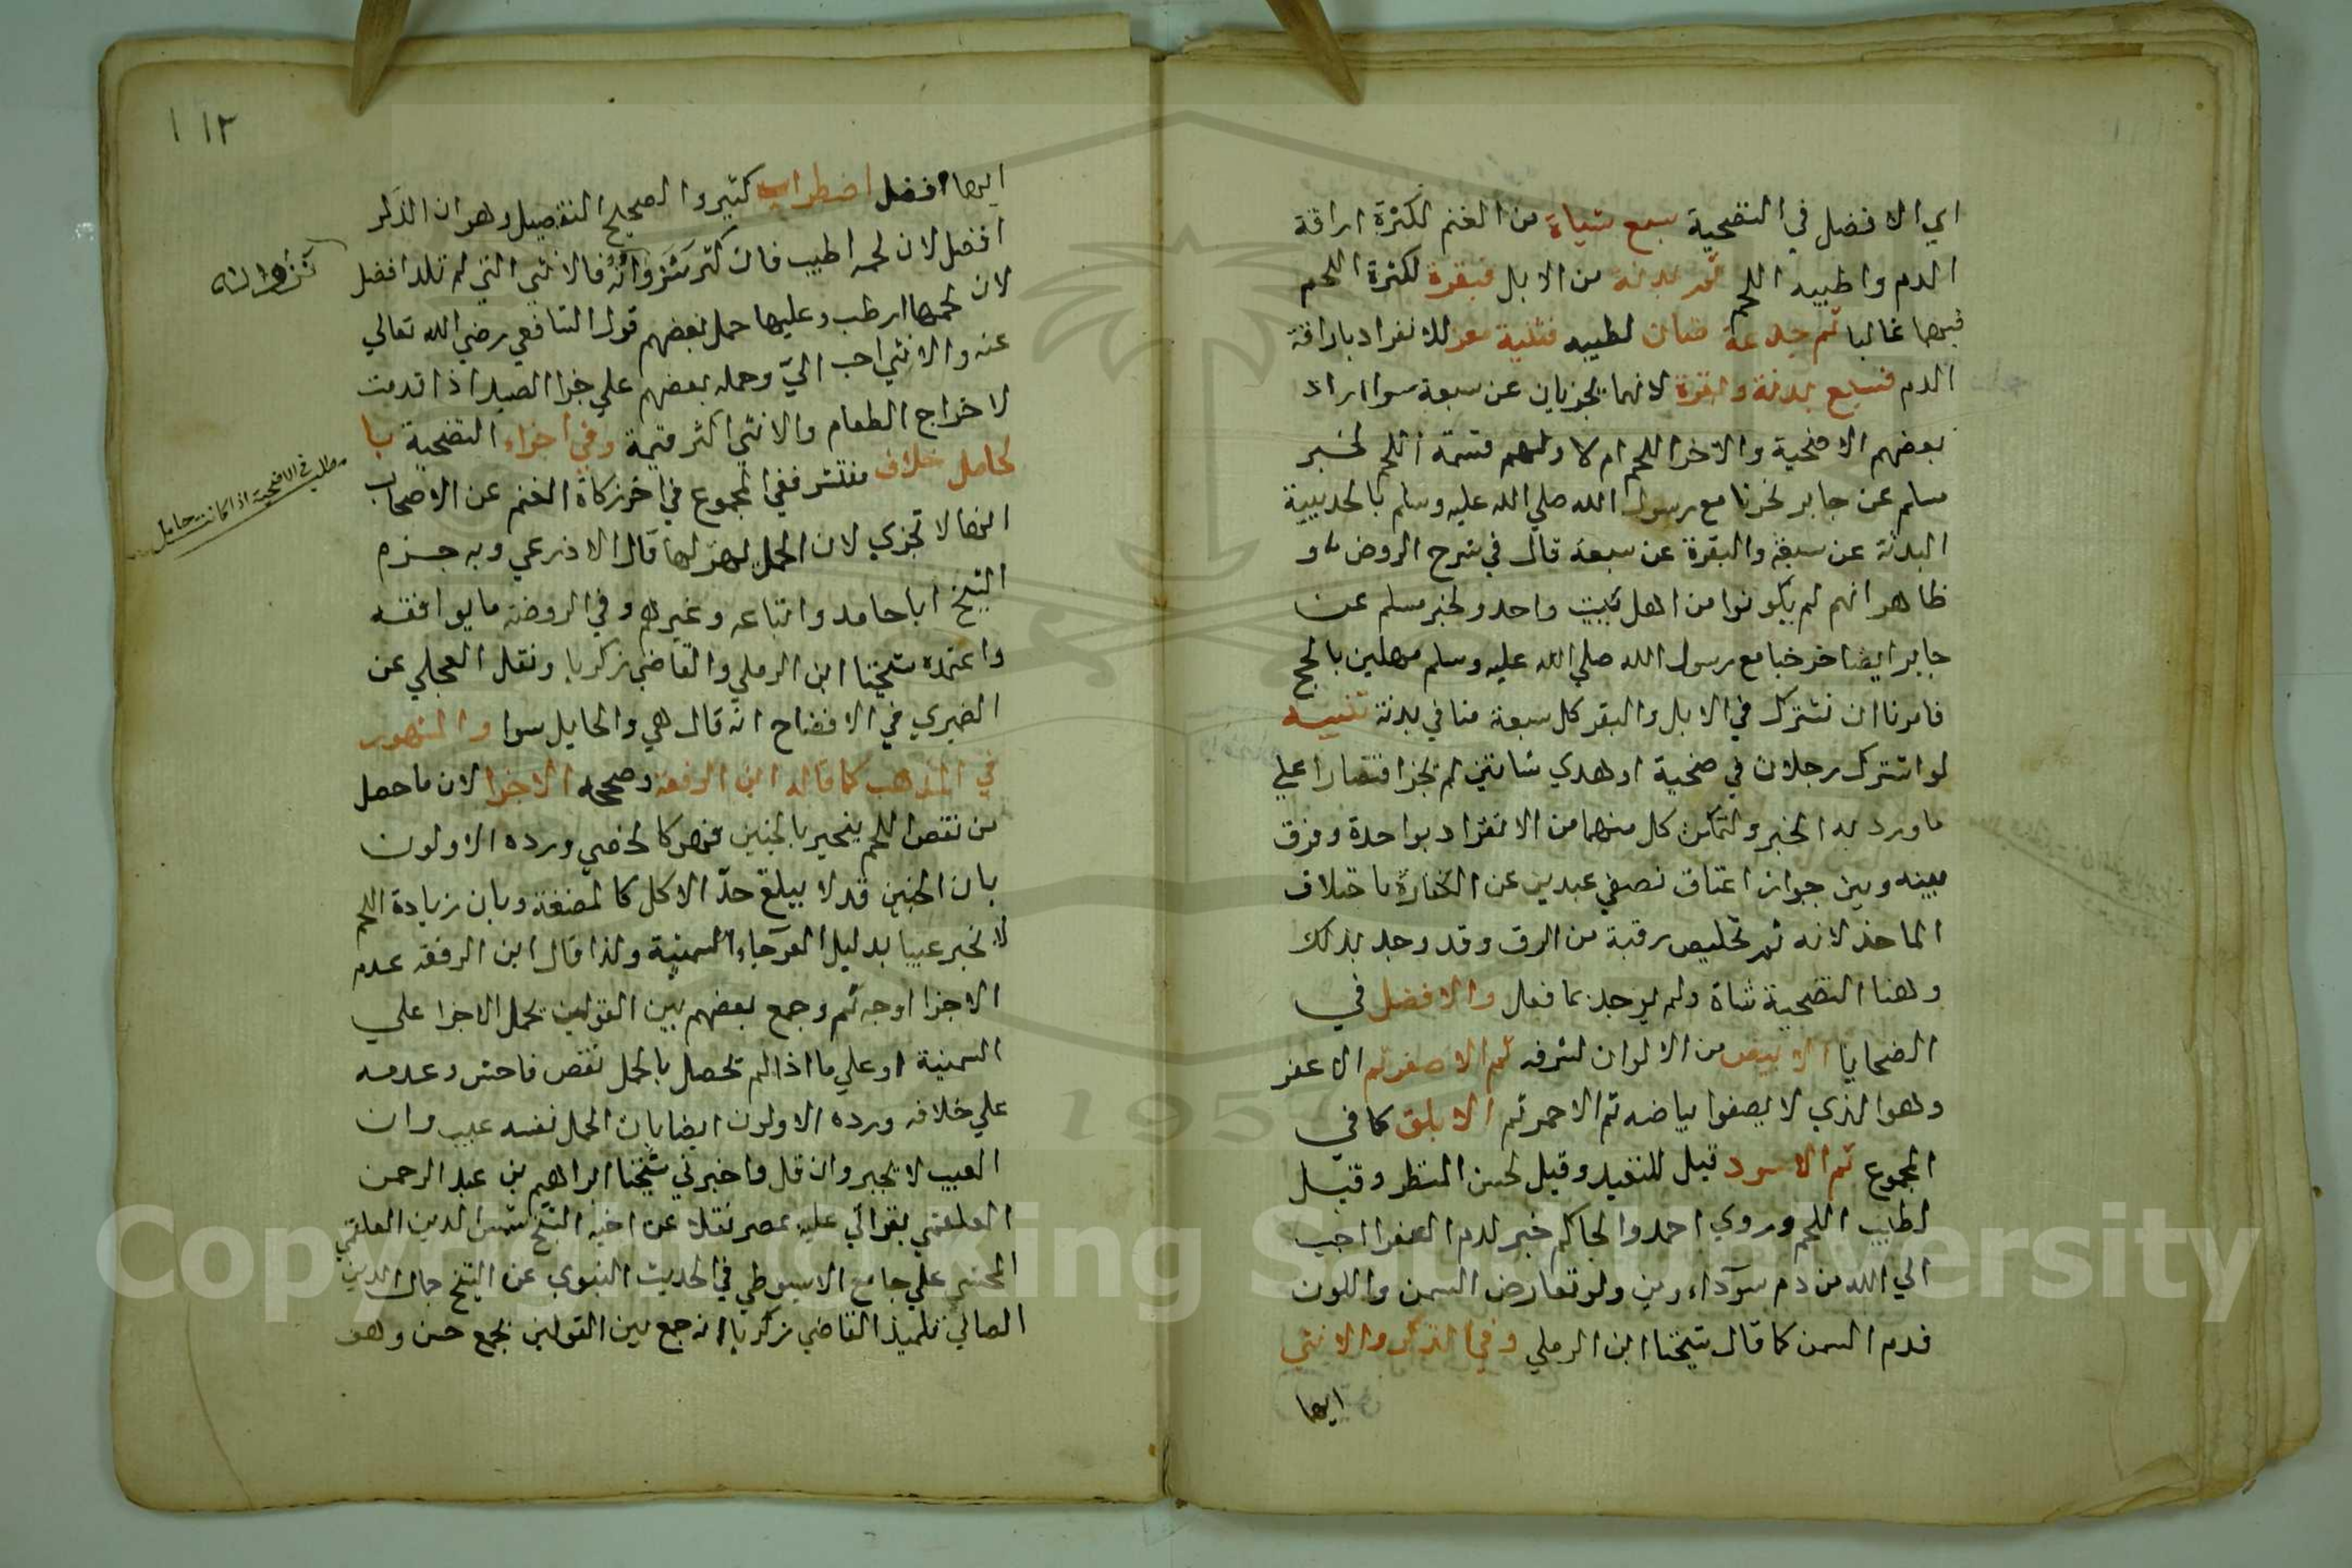 اي الافضل في التضحية سبع شياة من الغنم لكثرة اراقة
الدم واطيبيه اللحم ثم بدنة من الابل فبقرة لكثرة اللحم
فيها غالبا ثم جذعة ضان لطيبه فثنية معز للانفراد باراقة
الدم فسبع بدنة وبقرة لانهما يجزيان عن سبعة سوا اراد
بعضهم الاضحية والاخر اللحم ام لا ولهم قسمة اللحم لخبر
مسلم عن جابر نحرنا مع رسول الله صلي الله عليه وسلم بالحديبية
البدنة عن سبعة والبقرة عن سبعة قال في شرح الروض و
ظاهر انهم لم يكونوا من اهل بيت واحد ولخبر مسلم عن
جابر ايضا خرجنا مع رسول الله صلي الله عليه وسلم مهلين بالحج
فامرنا ان نشترك في الابل والبقر كل سبعة منا في بدنة تنبيه
لو اشترك رجلان في ضحية او هدي شاتين لم يجز اقتصارا علي
ما ورد به الخبر ولتمكن كل منهما من الانفراد بواحدة وفرق
بينه وبين جواز اعتاق نصفي عبدين عن الكفارة باختلاف
الماخذ لانه ثم تخليص رقبة من الرق وقد وجد بذلك
وهنا التضحية شاة ولم يوجد بما فعل والافضل في
الضحايا الابيض من الالوان لشرفه ثم الاصفر ثم الاعفر
وهو الذي لا يصفوا بياضه ثم الاحمر ثم الابلق كما في
المجموع ثم الاسود قيل للتعبد وقيل لحسن المنظر وقيل
لطيب اللحم وروي احمد والحاكم خبر لدم العفرا احب
الي الله من دم سوداوين ولو تعارض السمن واللون
قدم السمن كما قال شيخنا ابن الرملي وفي الذكر والانثي
ايها
١١٢
ايها افضل اضطراب كثير والصحيح التفصيل وهو ان الذكر
افضل لان لحمه اطيب فان كثر نزوانه فالانثي التي لم تلد افضل
لان لحمها ارطب وعليها حمل بعضهم قول الشافعي رضي الله تعالي
عنه والانثي احب اليّ وحمله بعضهم علي جزا الصيد اذا قدمت
لاخراج الطعام والانثي اكثر قيمة وفي اجزاء التضحية با
لحامل خلاف منتشر ففي المجموع في اخر زكاة الغنم عن الاصحاب
انها لا تجزي لان الحمل يهزلها قال الاذرعي وبه جزم
الشيخ ابا حامد واتباعه وغيرهم وفي الروضة ما يوافقه
واعتمده شيخنا ابن الرملي والقاضي زكريا ونقل العجلي عن
الضيري في الافضاح انه قال هي والحايل سوا والمشهور
في المذهب كما قاله ابن الرفعة وصححه الاجزا لان ما حصل
من نقص اللحم ينجبر بالجنين فهو كالخصي ورده الاولون
بان الجنين قد لا يبلغ حدّ الاكل كالمضغة وبان زيادة اللحم
لا تجبر عيبا بدليل العرجاء السمينة ولذا قال ابن الرفعة عدم
الاجزا اوجه ثم وجمع بعضهم بين القولين بحمل الاجزا علي
السمنية او علي ما اذا لم تحصل بالحمل نقص فاحش وعدمه
علي خلافه ورده الاولون ايضا بان الحمل نفسه عيب وان
العيب لا يجبر وان قل واخبرني شيخنا ابراهيم بن عبد الرحمن
العلقمي بقراتي عليه بمصر نقلا عن اخيه الشيخ شمس الدين العلقمي
المحشي علي جامع الاسيوطي في الحديث النبوي عن الشيخ جمال الدين
الصاني تلميذ القاضي زكريا انه جمع بين القولين بجمع حسن وهو
نزوانه
مطلب في الاضحية اذا كانت حامل
Copyright © King Saud University
1957